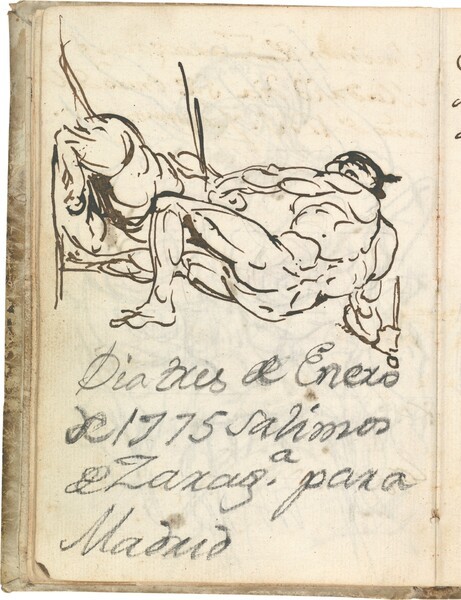 Dia tres de Enero
de 1775 salimos
de Zarag.a para
Madrid